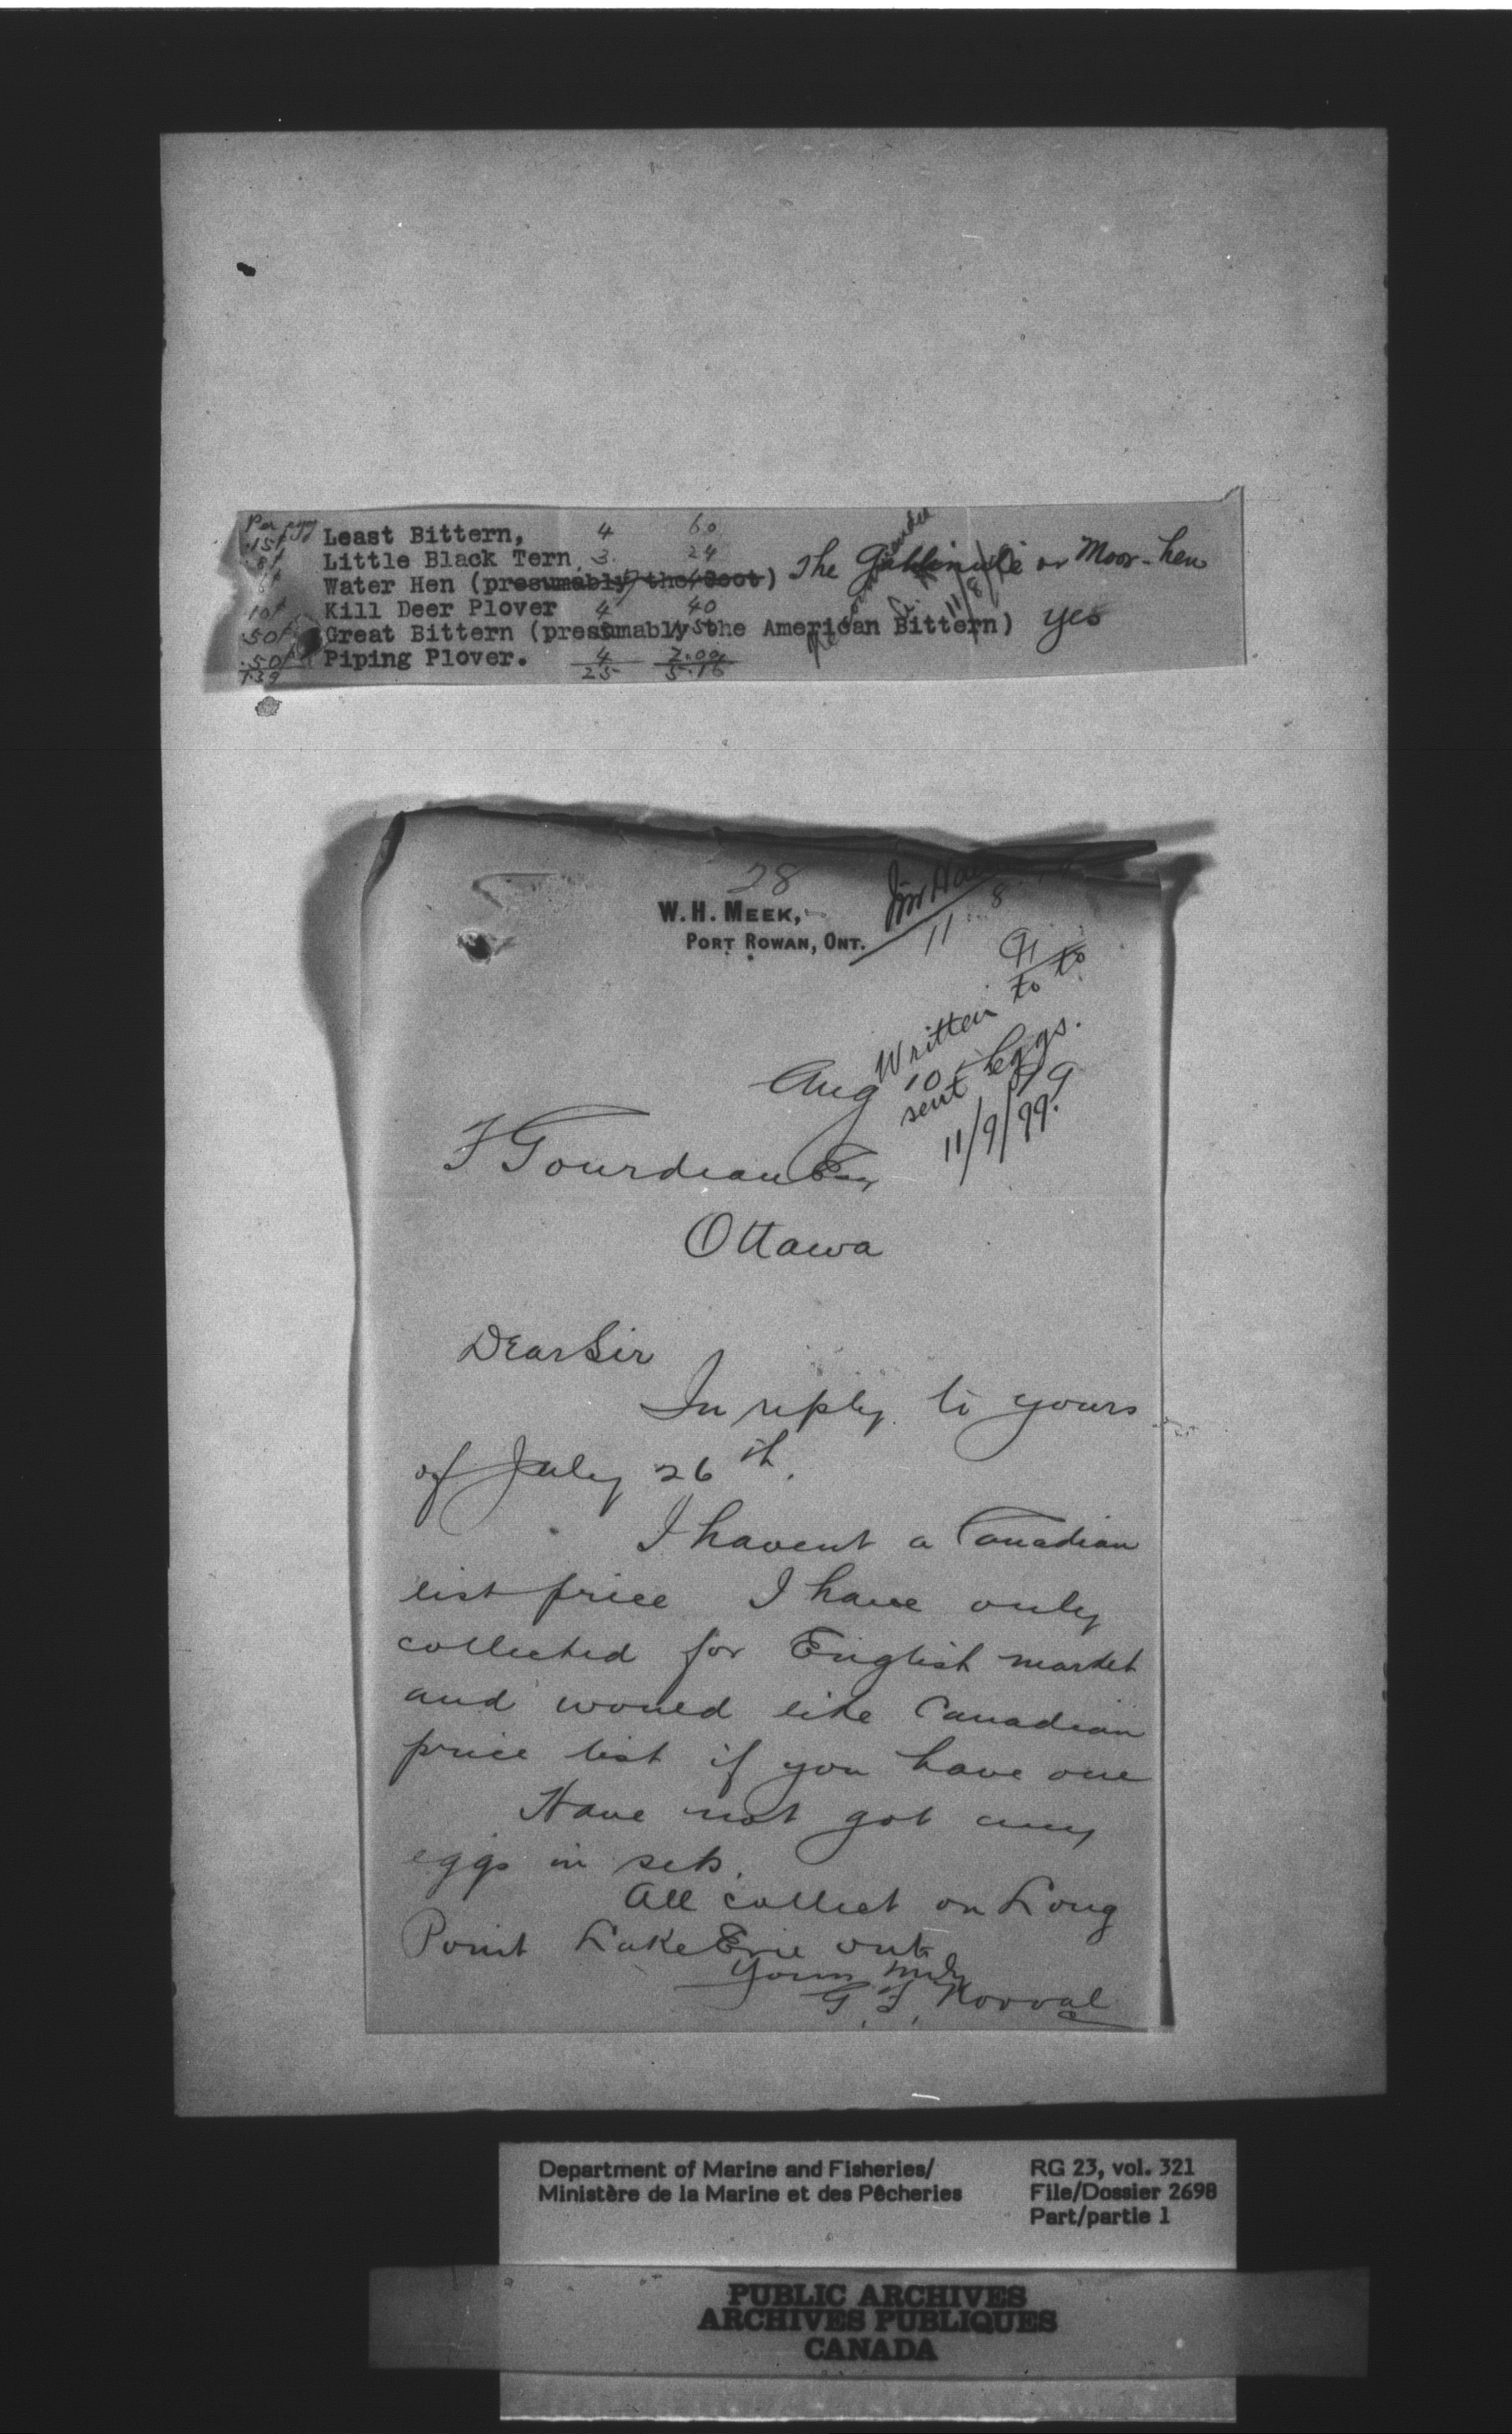 Per egg
.15¢ Least Bittern, 4 60
8¢ Little Black Tern, 3. 24
6¢ Water Hen (presumably the Coot) The Gallinule or Moor-hen
10¢ Kill Deer Plover 4 40
.50¢ Great Bittern (presumably the American Bittern) yes
.50¢ Piping Plover. 4 2.00
1.39 25 5.16
11/8/
28
W. H. MEEK,
PORT ROWAN, ONT.
11 8
91
Written to to
sent Eggs.
11/9/99.
Aug 10 / 99
F Gourdeau Esq
Ottawa
Dear Sir
In reply to yours
of July 26th.
I havent a Canadian
list price I have only
collected for English market
and would like Canadian
price list if you have one
Have not got any
eggs in sets.
All collect on Long
Point Lake Erie ont
Yours truly
G. F. Norval
Department of Marine and Fisheries/
Ministère de la Marine et des Pêcheries
RG 23, vol. 321
File/Dossier 2698
Part/partie 1
PUBLIC ARCHIVES
ARCHIVES PUBLIQUES
CANADA